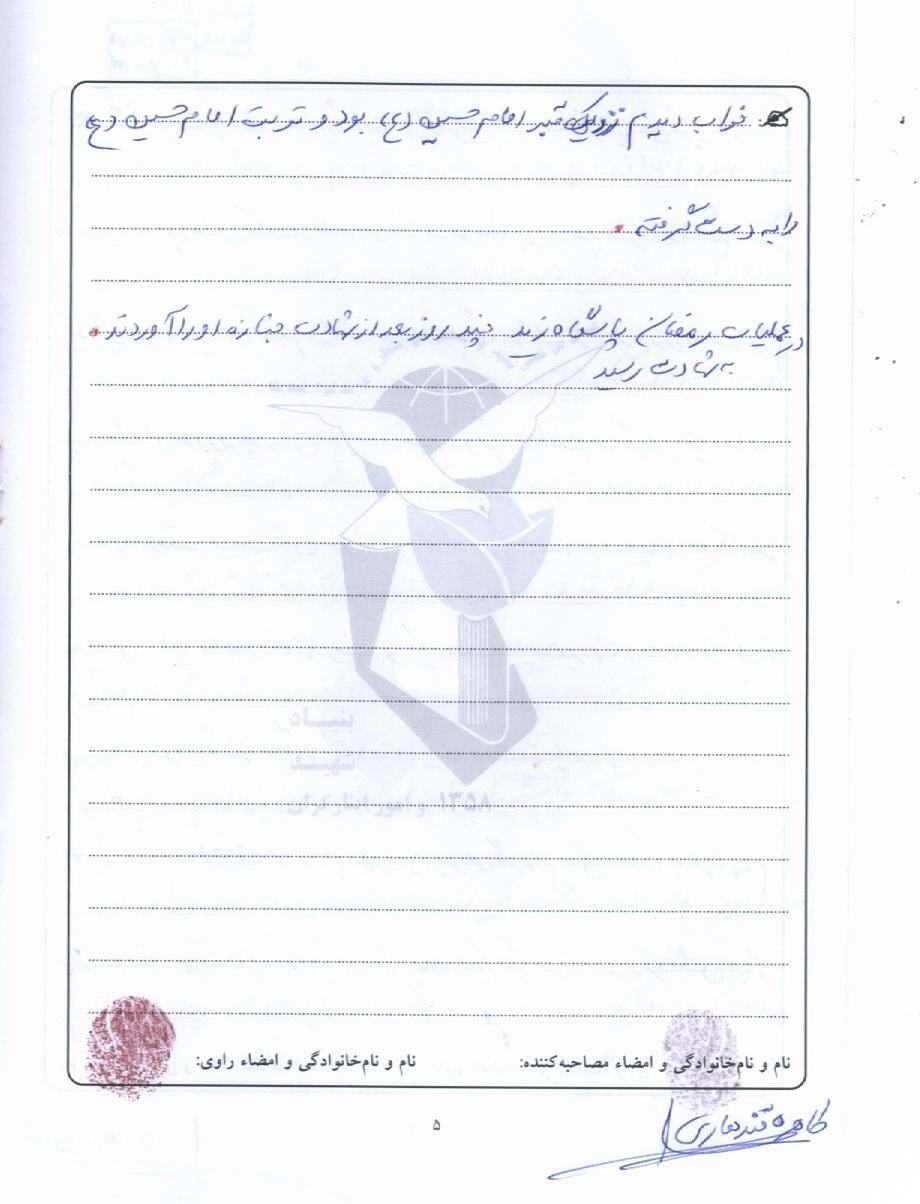 خواب دیدم نزدیک قبر امام حسین (ع) بود و تربت امام حسین (ع)
را به دست گرفته.
در عملیات رمضان پاسگاه زید چند روز بعد از شهادت جنازه او را آوردند.
به شهادت رسید
بنیاد
شهید
و امور ایثارگران ۱۳۵۸
نام و نام‌خانوادگی و امضاء مصاحبه‌کننده: نام و نام‌خانوادگی و امضاء راوی:
طاهره قندهاری
۵